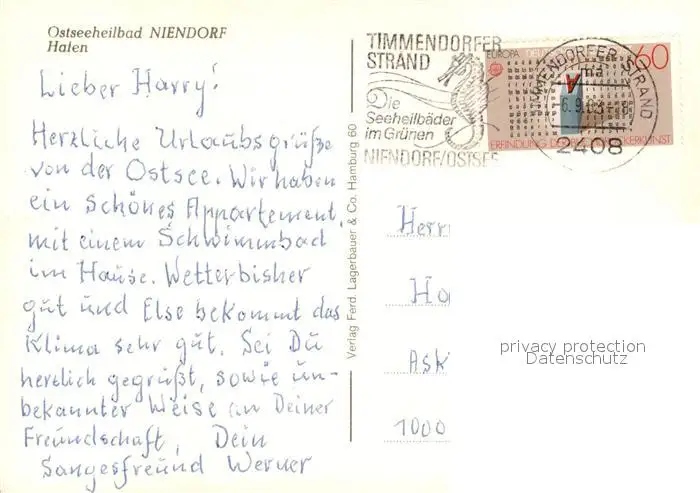 Ostseeheilbad NIENDORF
Hafen
Lieber Harry!
Herzliche Urlaubsgrüße
von der Ostsee. Wir haben
ein schönes Appartement,
mit einem Schwimmbad
im Hause. Wetter bisher
gut und Else bekommt das
Klima sehr gut. Sei Du
herzlich gegrüßt, sowie un-
bekannter Weise an Deiner
Freundschaft, Dein
Sangesfreund Werner
Verlag Ferd. Lagerbauer & Co. Hamburg 60
TIMMENDORFER
STRAND
Die
Seeheilbäder
im Grünen
NIENDORF/OSTSEE
EUROPA
60
ERFINDUNG
KERKUNST
TIMMENDORFER STRAND
2408
Herr
Ha
Ask
1000
privacy protection
Datenschutz